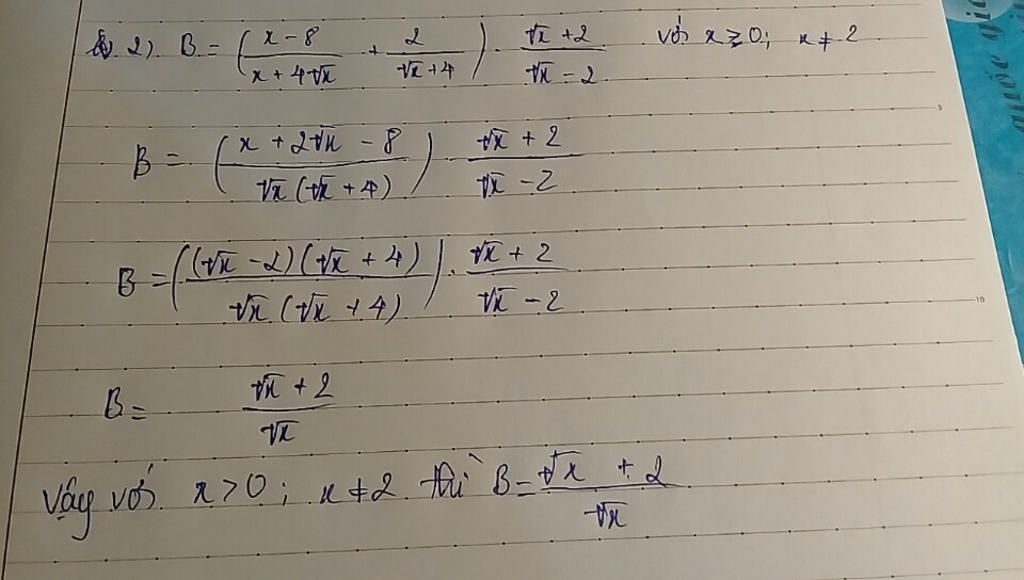 2) B = ( (x - 8)/(x + 4√x) + 2/(√x + 4) ) . (√x + 2)/(√x - 2) với x ≥ 0; x ≠ 2
B = ( (x + 2√x - 8)/(√x (√x + 4)) ) . (√x + 2)/(√x - 2)
B = ( ((√x - 2)(√x + 4))/(√x (√x + 4)) ) . (√x + 2)/(√x - 2)
B = (√x + 2)/√x
Vậy với x > 0; x ≠ 2 thì B = (√x + 2)/√x
5
10